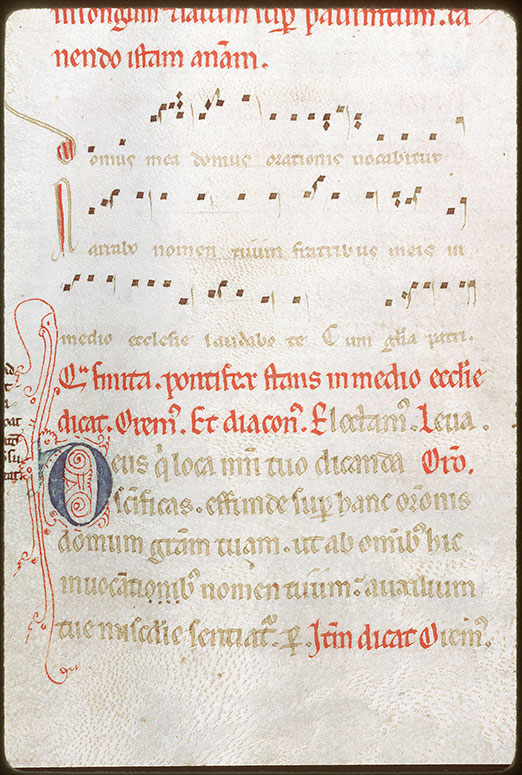 in longum ⁊ latum sup̱ pauimtum. ca
nendo istam anām.
Domus mea domus orationis uocabitur
Narrabo nomen tuum fratribus meis in
medio ecclesie laudabo te Cum gl̄ia patri.
Qua finita. pontifex stans in medio ecclīe
dicat. Orem⁹. Et diacon⁹. Flectam⁹. Leua.
Deus q̄ loca nōi tuo dicanda Orō.
scīficas. effunde sup̱ hanc orōnis
domum grām tuam. ut ab omīb⁹ hic
inuocātionib⁹ nomen tuum. auxilium
tue misc̄die sentiat᷑. p̱. Itm̄ dicat Orem⁹.